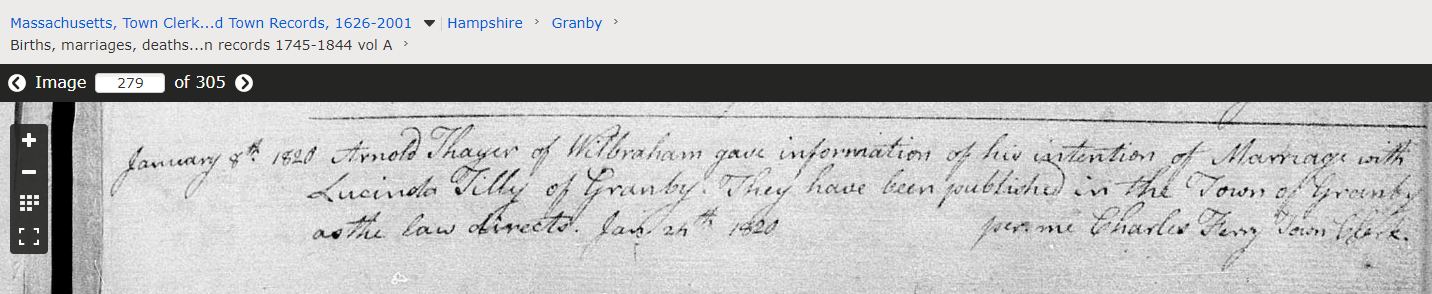 Massachusetts, Town Clerk...d Town Records, 1626-2001 Hampshire › Granby ›
Births, marriages, deaths...n records 1745-1844 vol A ›
Image 279 of 305
January 8th 1820 Arnold Thayer of Wilbraham gave information of his intention of Marriage with
Lucinda Tilly of Granby. They have been published in the Town of Granby
as the law directs. Jan 24th 1820 per me Charles Ferry Town Clerk.